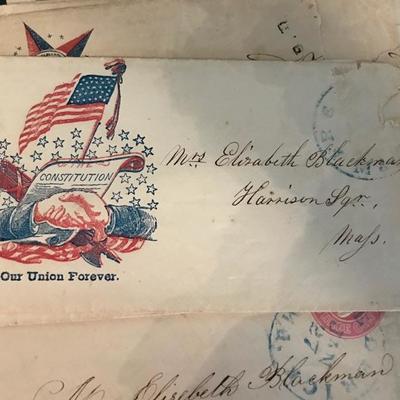 CONSTITUTION
Our Union Forever.
Mrs Elizabeth Blackman
Harrison Sqr.,
Mass.
Elizebeth Blackman